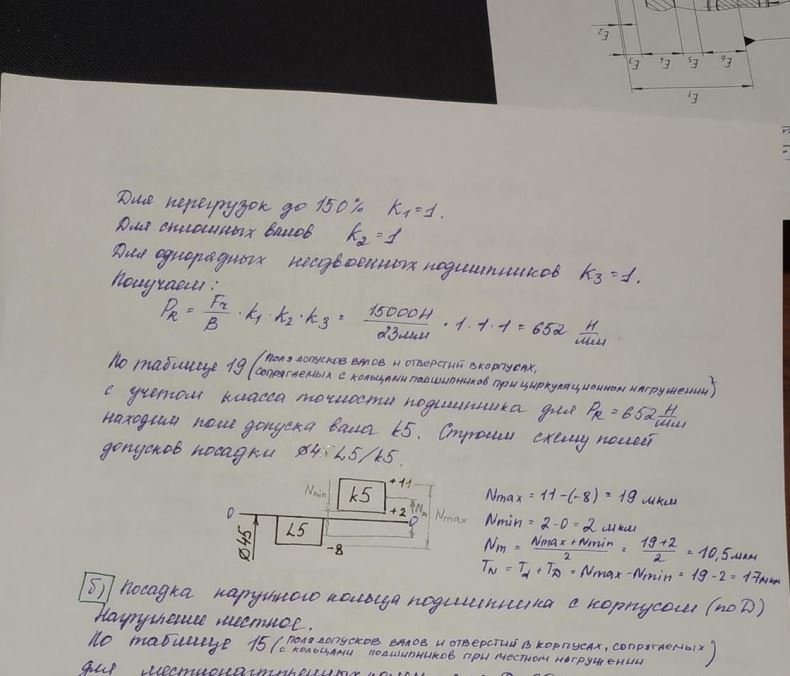 E₂
E₃
E₄
E₅
E₆
E₁
Для перегрузок до 150% K₁=1.
Для сплошных валов K₂=1
Для однорядных несдвоенных подшипников K₃=1.
Получаем:
P_R = F_r/B · k₁ · k₂ · k₃ = 15000Н/23мм · 1 · 1 · 1 = 652 Н/мм.
По таблице 19 (поля допусков валов и отверстий в корпусах,
сопрягаемых с кольцами подшипников при циркуляционном нагружении)
с учетом класса точности подшипника для P_R = 652 Н/мм
находим поле допуска вала k5. Строим схему полей
допусков посадки ø45 L5/k5.
Nmin k5 +11 +2 Nm Nmax
0 0
ø45 L5 -8
Nmax = 11-(-8) = 19 мкм
Nmin = 2-0 = 2 мкм
Nm = (Nmax+Nmin)/2 = (19+2)/2 = 10,5 мкм
T_N = T_d + T_D = Nmax-Nmin = 19-2 = 17 мкм
б) Посадка наружного кольца подшипника с корпусом (по D)
Нагружение местное.
По таблице 15 (поля допусков валов и отверстий в корпусах, сопрягаемых
с кольцами подшипников при местном нагружении)
для местнонагруженных